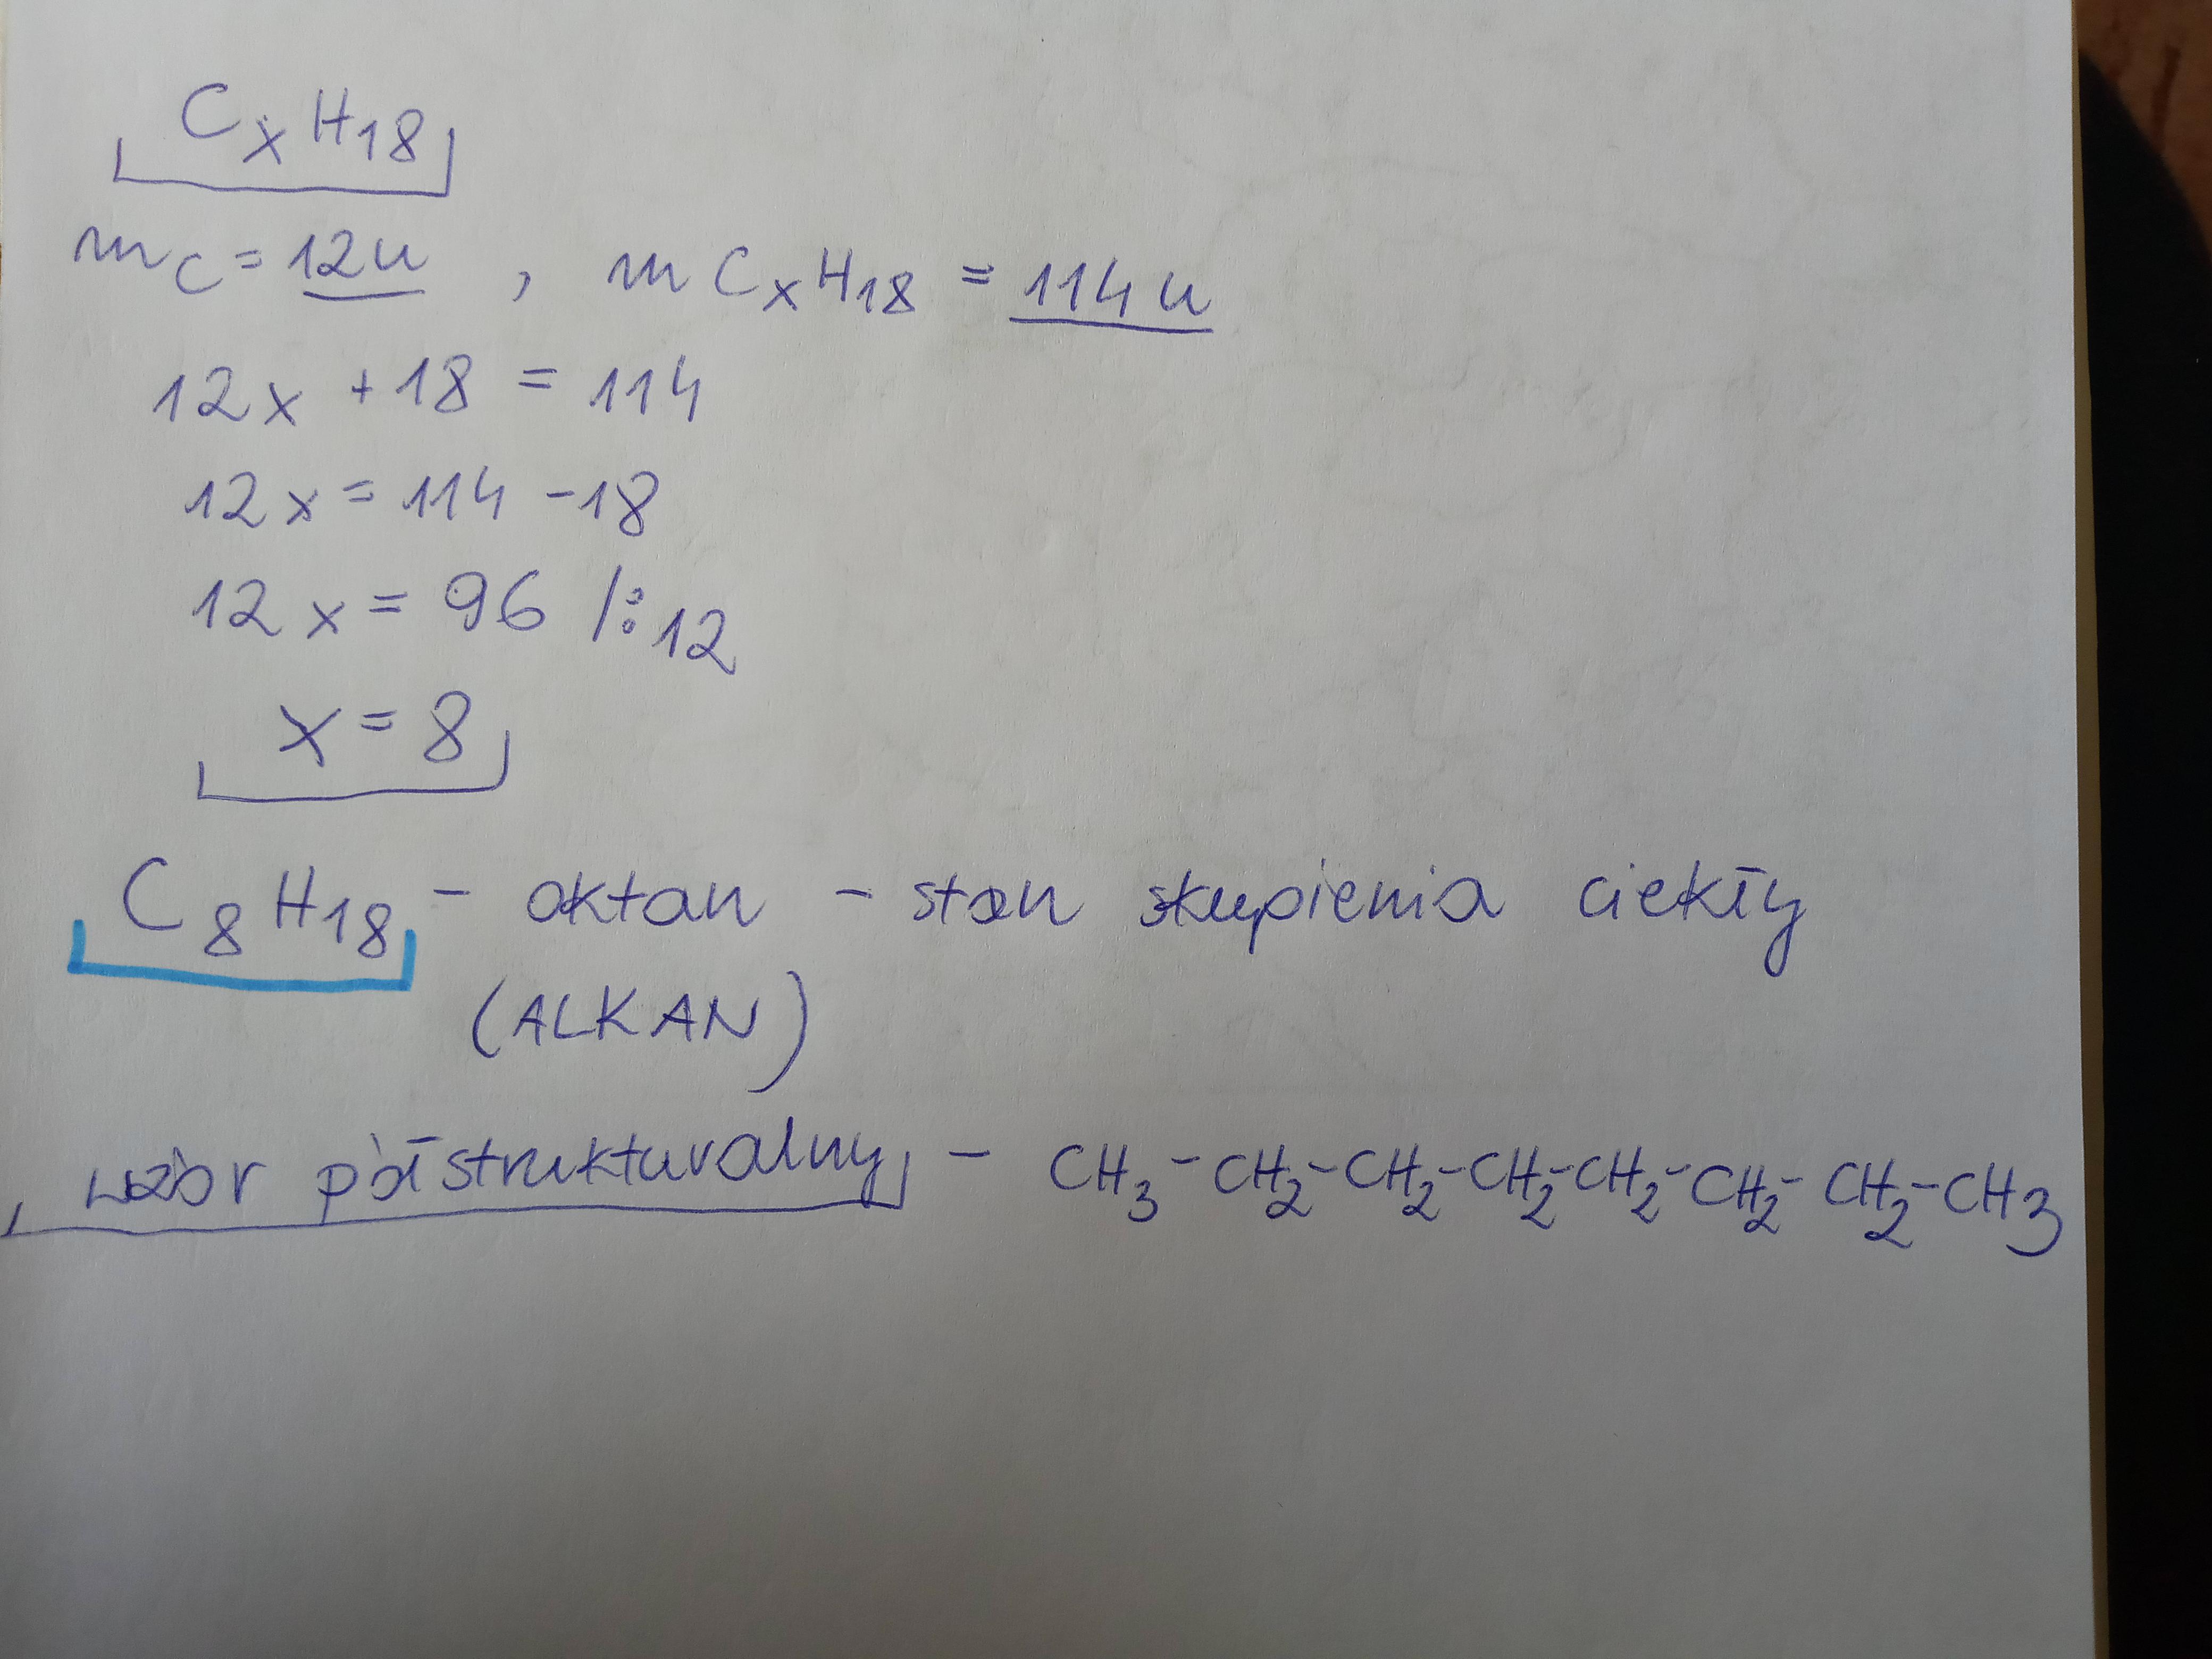 CxH18
mC = 12u , mCxH18 = 114u
12x + 18 = 114
12x = 114 - 18
12x = 96 /:12
x = 8
C8H18 - oktan - stan skupienia ciekły
(ALKAN)
wzór półstrukturalny - CH3-CH2-CH2-CH2-CH2-CH2-CH2-CH3